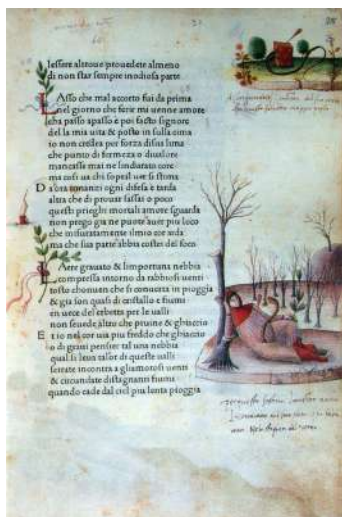 lessere altroue prouedete almeno
di non star sempre in odiosa parte
LAsso che mal accorto fui da prima
nel giorno che ferir mi uenne amore
cha passo apasso e poi facto signore
de la mia uita & posto in sulla cima
io non credea per forza di sua lima
che punto di fermeza o di ualore
mancasse mai ne lindurato core
ma cosi ua chi sopra il uer si stima
Da ora inanzi ogni difesa e tarda
altra che di prouar sassai o poco
questi prieghi mortali amore sguarda
non prego gia ne puote auer piu loco
che misuratamente il mio cor arda
ma che sua parte abbia costei del foco
LAere grauato & limportuna nebbia
compressa intorno da rabbiosi uenti
tosto conuen che si conuerta in pioggia
& gia son quasi di cristallo e fiumi
en uece del erbetta per le ualli
non seuede altro che pruine & ghiaccio
Et io nel cor uia piu freddo che ghiaccio
o di graui pensier tal una nebbia
qual si leua talor di queste ualli
serrate incontra agliamorosi uenti
& circundate distagnanti fiumi
quando cade dal ciel piu lenta pioggia